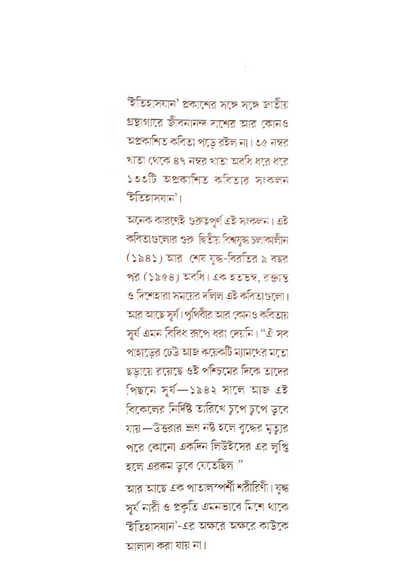 'ইতিহাসযান' প্রকাশের সঙ্গে সঙ্গে জাতীয়
গ্রন্থাগারে জীবনানন্দ দাশের আর কোনও
অপ্রকাশিত কবিতা পড়ে রইল না। ৩৫ নম্বর
খাতা থেকে ৪৭ নম্বর খাতা অবধি ধরে ধরে
১৩৩টি অপ্রকাশিত কবিতার সংকলন
'ইতিহাসযান'।
অনেক কারণেই গুরুত্বপূর্ণ এই সংকলন। এই
কবিতাগুলোর শুরু দ্বিতীয় বিশ্বযুদ্ধ চলাকালীন
(১৯৪১) আর শেষ যুদ্ধ-বিরতির ৯ বছর
পর (১৯৫৪) অবধি। এক হতভম্ব, রক্তাক্ত
ও দিশেহারা সময়ের দলিল এই কবিতাগুলো।
আর আছে সূর্য। পৃথিবীর আর কোনও কবিতায়
সূর্য এমন বিবিধ রূপে ধরা দেয়নি। “ঐ সব
পাহাড়ের ঢেউ আজ কয়েকটি ম্যামথের মতো
ছড়ায়ে রয়েছে ওই পশ্চিমের দিকে তাদের
পিছনে সূর্য—১৯৪২ সালে আজ এই
বিকেলের নির্দিষ্ট তারিখে চুপে চুপে ডুবে
যায়—উত্তরার ভ্রূণ নষ্ট হলে বুদ্ধের মৃত্যুর
পরে কোনো একদিন লিউইসের এর লুপ্তি
হলে এরকম ডুবে যেতেছিল ”
আর আছে এক পাতালস্পর্শী শরীরিণী। যুদ্ধ
সূর্য নারী ও প্রকৃতি এমনভাবে মিশে থাকে
'ইতিহাসযান'-এর অক্ষরে অক্ষরে কাউকে
আলাদা করা যায় না।